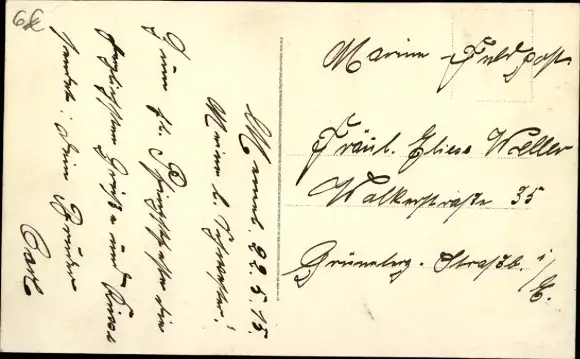 Wermel. 22.5.15.
Meine l. Schwester!
Zum hl. Pfingstfeste die
herzlichsten Grüße und Kuss
sendet Dein Bruder
Carl
Marine - Feldpost
Fräul. Eliese Weller
Walkerstraße 35
Grüneberg - Straßb. i/E.
6€